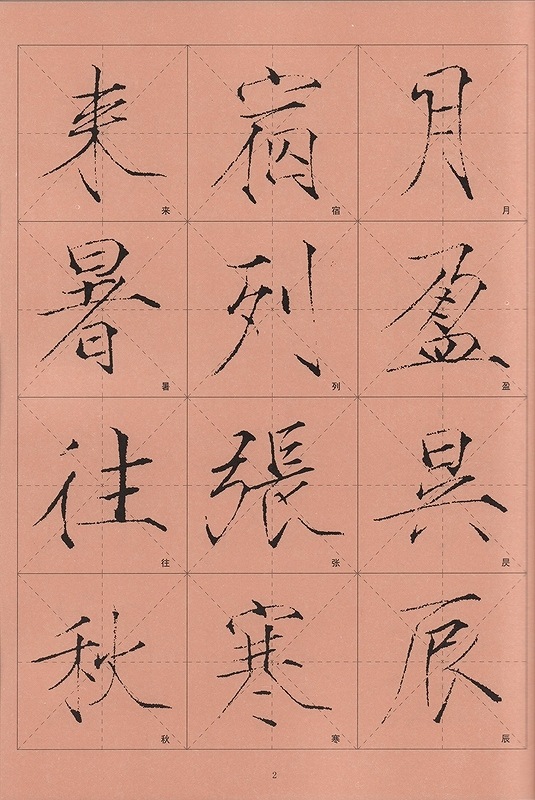 月
月
盈
盈
昃
昃
辰
辰
宿
宿
列
列
張
张
寒
寒
来
来
暑
暑
往
往
秋
秋
2